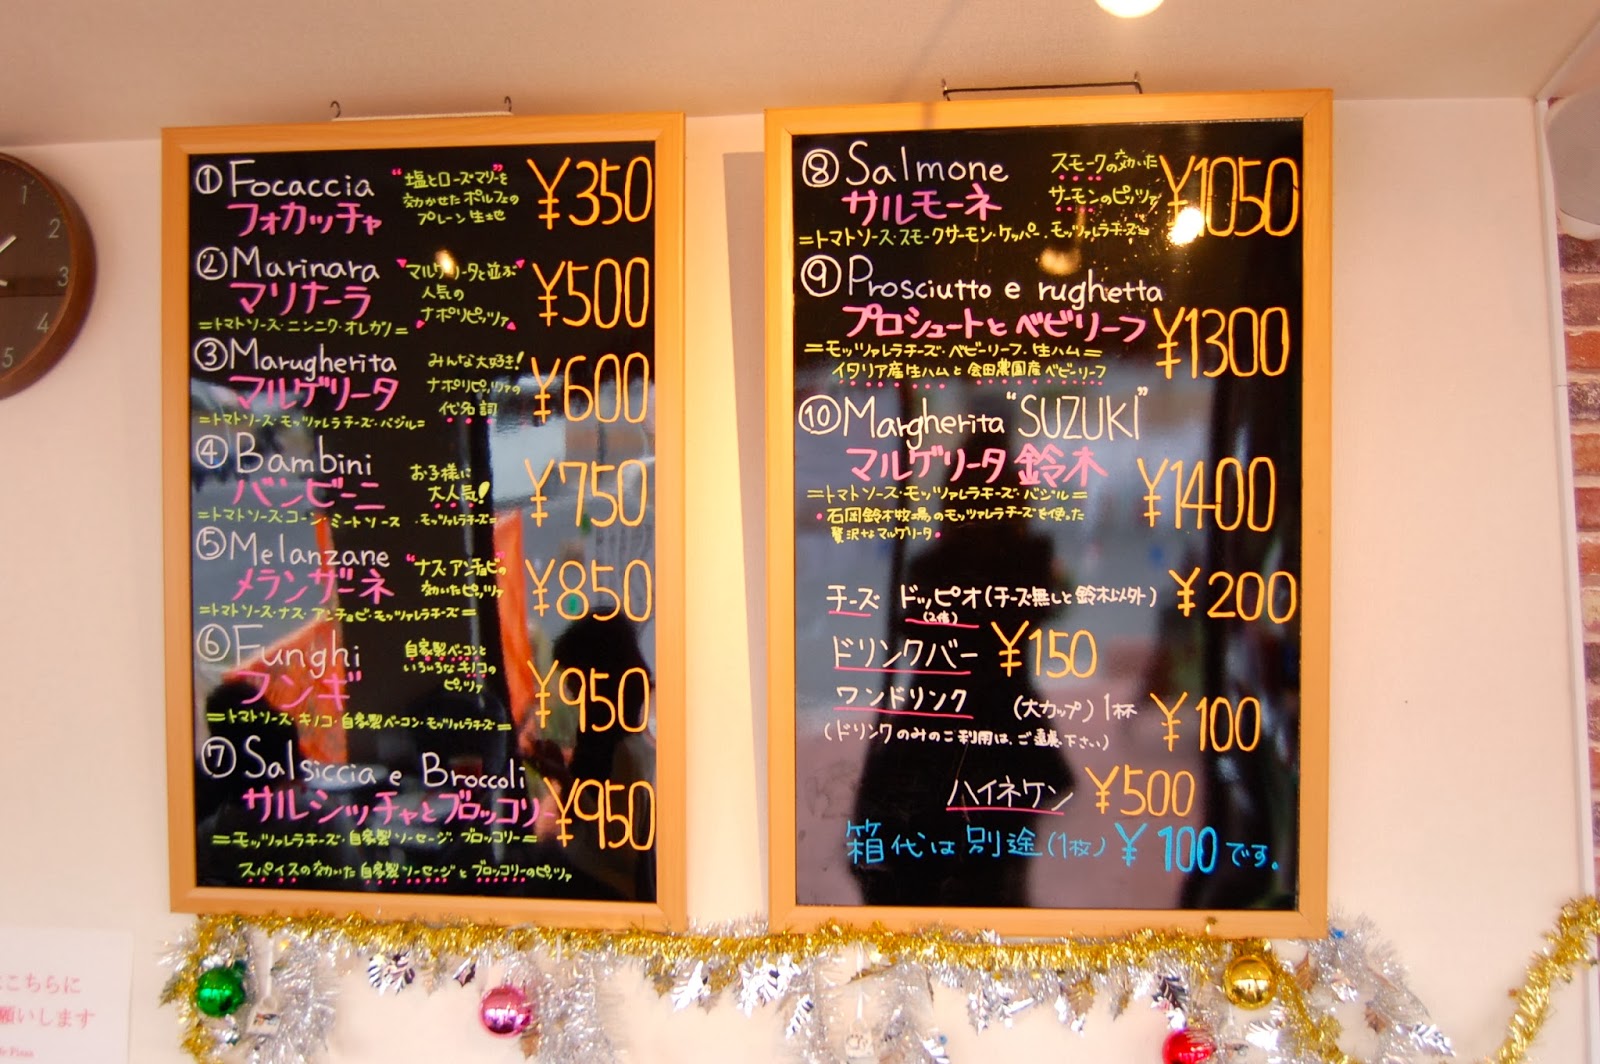 ① Focaccia
フォカッチャ
"塩とローズマリー"を
効かせたポルフェの
プレーン生地
¥350
② Marinara
マリナーラ
"マルゲリータと並ぶ"
人気の
ナポリピッツァ
¥500
=トマトソース・ニンニク・オレガノ=
③ Marugherita
マルゲリータ
みんな大好き!
ナポリピッツァの
代名詞
¥600
=トマトソース・モッツァレラチーズ・バジル=
④ Bambini
バンビーニ
お子様に
大人気!
¥750
=トマトソース・コーン・ミートソース・モッツァレラチーズ=
⑤ Melanzane
メランザーネ
"ナス・アンチョビ"の
効いたピッツァ
¥850
=トマトソース・ナス・アンチョビ・モッツァレラチーズ=
⑥ Funghi
フンギ
自家製ベーコンと
いろいろなキノコの
ピッツァ
¥950
=トマトソース・キノコ・自家製ベーコン・モッツァレラチーズ=
⑦ Salsiccia e Broccoli
サルシッチャとブロッコリー
¥950
=モッツァレラチーズ・自家製ソーセージ・ブロッコリー=
スパイスの効いた自家製ソーセージとブロッコリーのピッツァ
⑧ Salmone
サルモーネ
スモークの効いた
サーモンのピッツァ
¥1050
=トマトソース・スモークサーモン・ケッパー・モッツァレラチーズ=
⑨ Prosciutto e rughetta
プロシュートとベビーリーフ
¥1300
=モッツァレラチーズ・ベビーリーフ・生ハム=
イタリア産生ハムと金田農園産ベビーリーフ
⑩ Margherita "SUZUKI"
マルゲリータ 鈴木
¥1400
=トマトソース・モッツァレラチーズ・バジル=
・石岡鈴木牧場のモッツァレラチーズを使った
贅沢なマルゲリータ・
チーズ ドッピオ(チーズ無しと鈴木以外) ¥200
(2倍)
ドリンクバー ¥150
ワンドリンク (大カップ)1杯 ¥100
(ドリンクのみのご利用は、ご遠慮下さい)
ハイネケン ¥500
箱代は別途(1枚)¥100です。
1
2
3
4
5
こちらに
願いします
Pizza